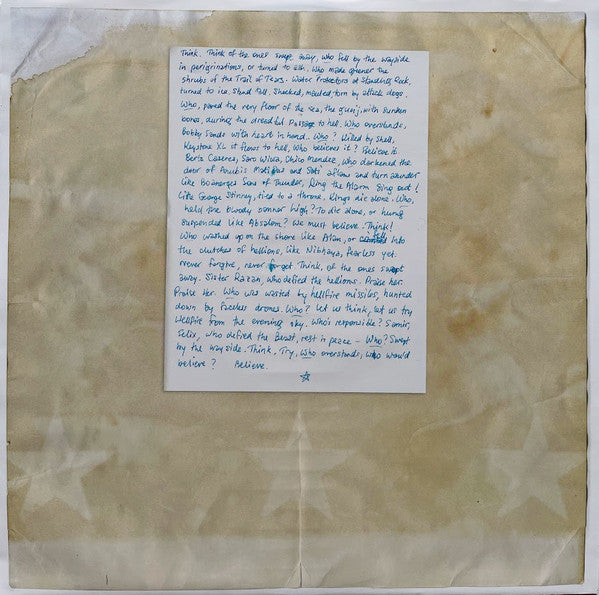 Think. Think of the ones swept away, who fell by the wayside
in perigrinations, or turned to ash. Who made greener the
shrubs of the Trail of Tears. Water Protectors at Standing Rock,
turned to ice. Shad fall. Shocked, mauled, torn by attack dogs.
Who, paved the very floor of the sea, the
with sunken
bones, during the dreadful Passage to hell. Who overstands,
Bobby Sands with heart in hand. Who? Killed by Shell,
Keystone XL it flows to hell, Who believes it? Believe it.
Berta Caceres, Saro Wiwa, Chico Mendez, who darkened the
door of
and
aflame and turn asunder
like Boanerges Sons of Thunder, Ring the Alarm Sing out!
Like George Stinney, tied to a throne, Kings die alone. Who,
held the bloody banner high? To die alone, or hung
suspended like Absalom? We must believe. Think!
Who washed up on the shore like Alan, or fell into
the clutches of hellions, like Nibhaya, fearless yet.
Never forgive, never forget. Think, of the ones swept
away. Sister Razan, who defied the hellions. Praise her.
Praise Her. Who was wasted by hellfire missiles, hunted
down by faceless drones. Who? Let us think, let us try
Hellfire from the evening sky. Who's responsible? Samir,
Felix, who defied the Beast, rest in peace - Who? Swept
by the wayside. Think, Try, Who overstands, who would
believe? Believe.